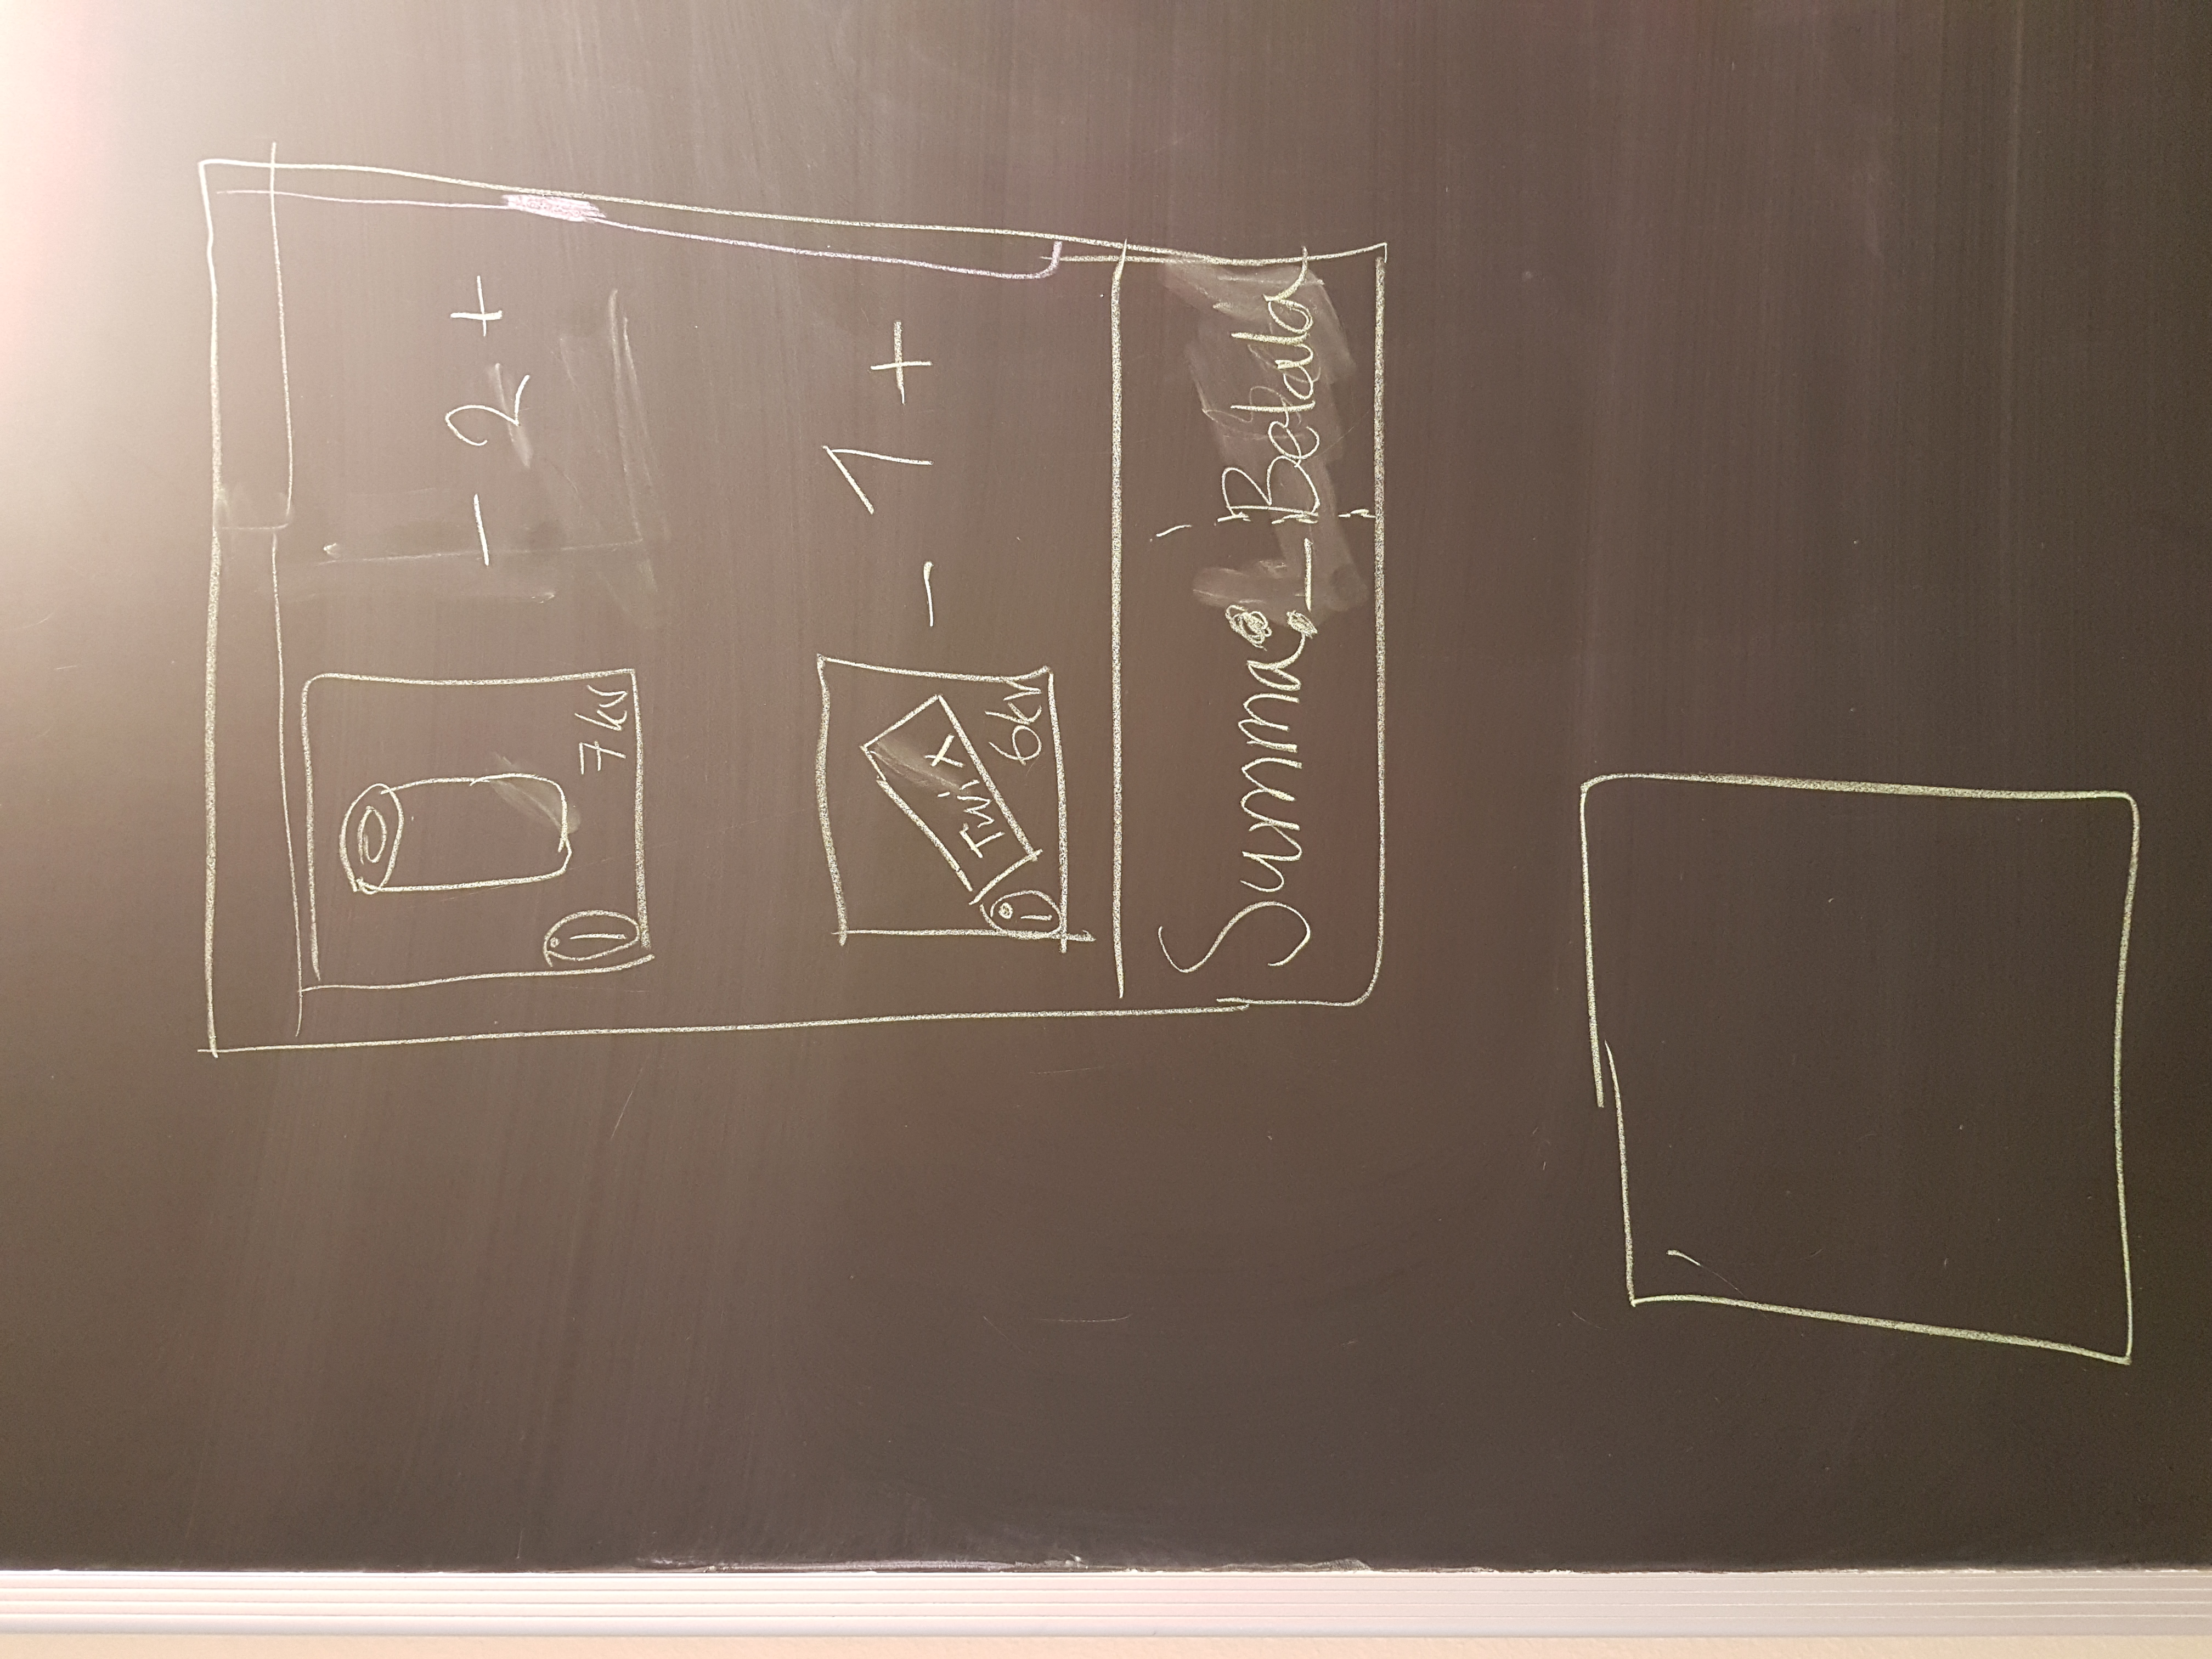 - 2 +
i
7kr
- 1 +
Twix
i
6kr
Summa: _ Betala